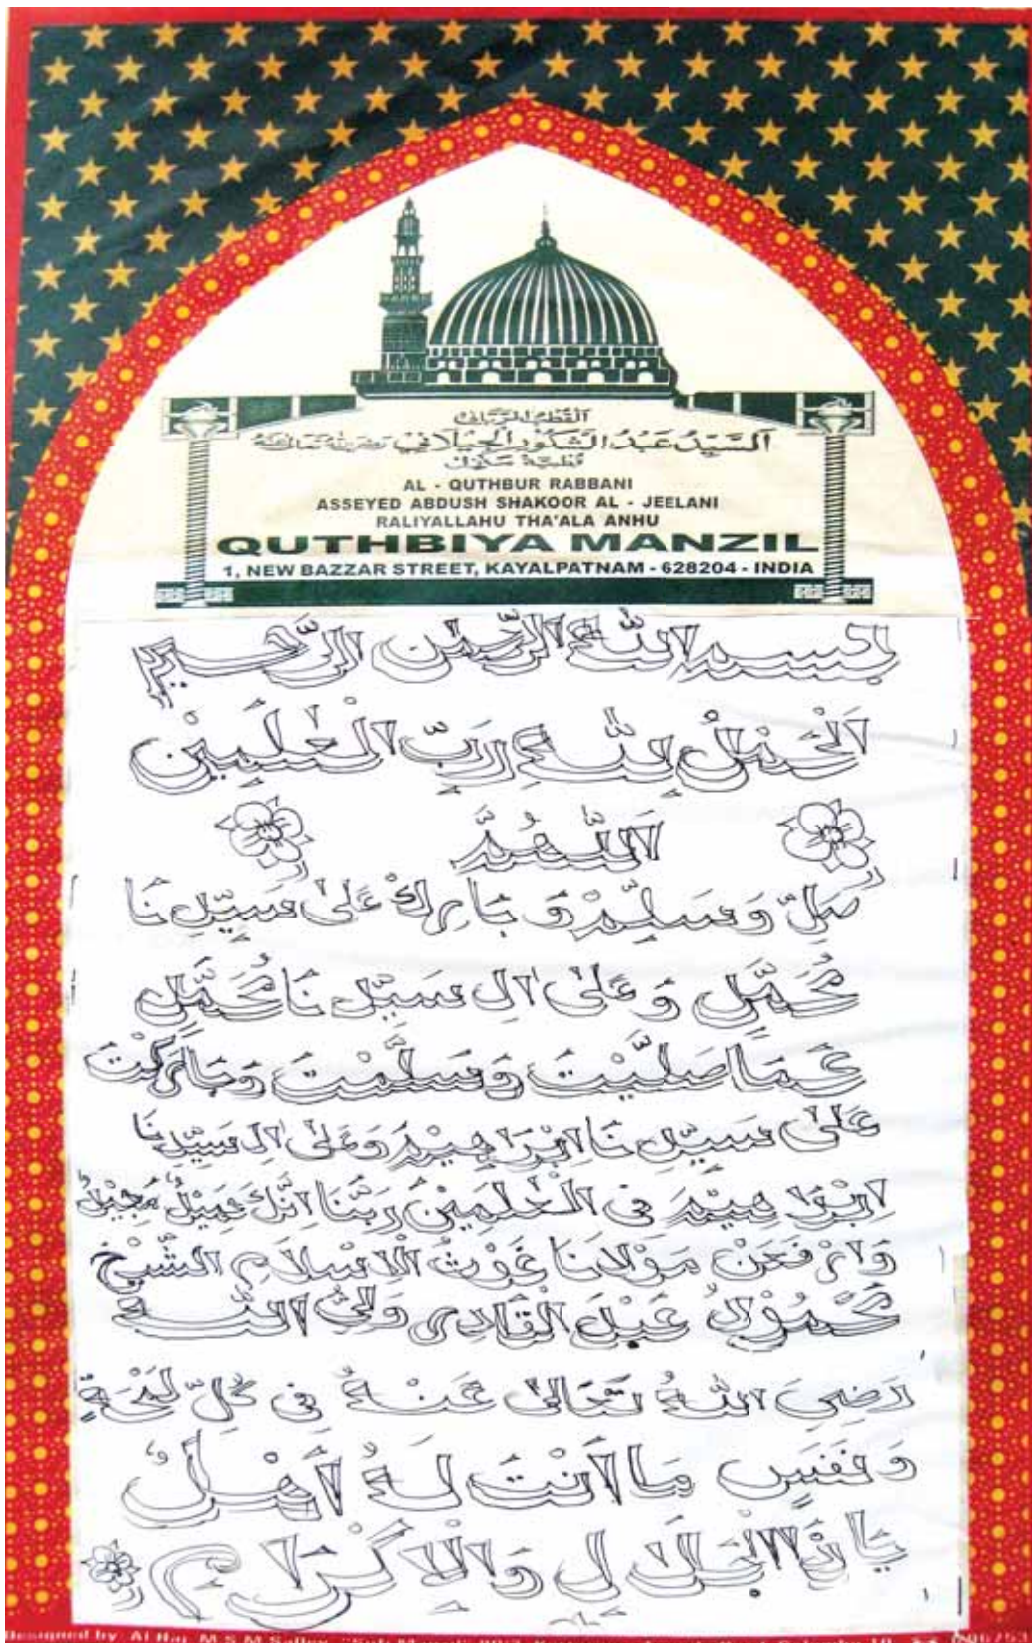 القطب الرباني
السيد عبد الشكور الجيلاني رضي الله تعالى عنه
قطبية منزل
AL - QUTHBUR RABBANI
ASSEYED ABDUSH SHAKOOR AL - JEELANI
RALIYALLAHU THA'ALA ANHU
QUTHBIYA MANZIL
1, NEW BAZZAR STREET, KAYALPATNAM - 628204 - INDIA
بسم الله الرحمن الرحيم
اَلْحَمْدُ لِلّٰهِ رَبِّ الْعٰلَمِيْنَ
اَللّٰهُمَّ
صَلِّ وَسَلِّمْ وَبَارِكْ عَلٰى سَيِّدِنَا
مُحَمَّدٍ وَعَلٰى اٰلِ سَيِّدِنَا مُحَمَّدٍ
كَمَا صَلَّيْتَ وَسَلَّمْتَ وَبَارَكْتَ
عَلٰى سَيِّدِنَا اِبْرَاهِيْمَ وَعَلٰى اٰلِ سَيِّدِنَا
اِبْرَاهِيْمَ فِى الْعٰلَمِيْنَ رَبَّنَا اِنَّكَ حَمِيْدٌ مَّجِيْدٌ
وَارْفَعَنْ مَوْلَانَا غَوْثُ الْاِسْلَامِ الشَّيْخ
مُحَمُوْدُ عَبْدَ الْقَادِرِى وَلِىُّ اللّٰه
رَضِىَ اللّٰهُ تَعَالٰى عَنْهُ فِى كُلِّ لَمْحَةٍ
وَنَفَسٍ مَا اَنْتَ لَهُ اَهْلٌ
يَا ذَا الْجَلَالِ وَالْاِكْرَام
Designed by: Al Haj. M.S.M.